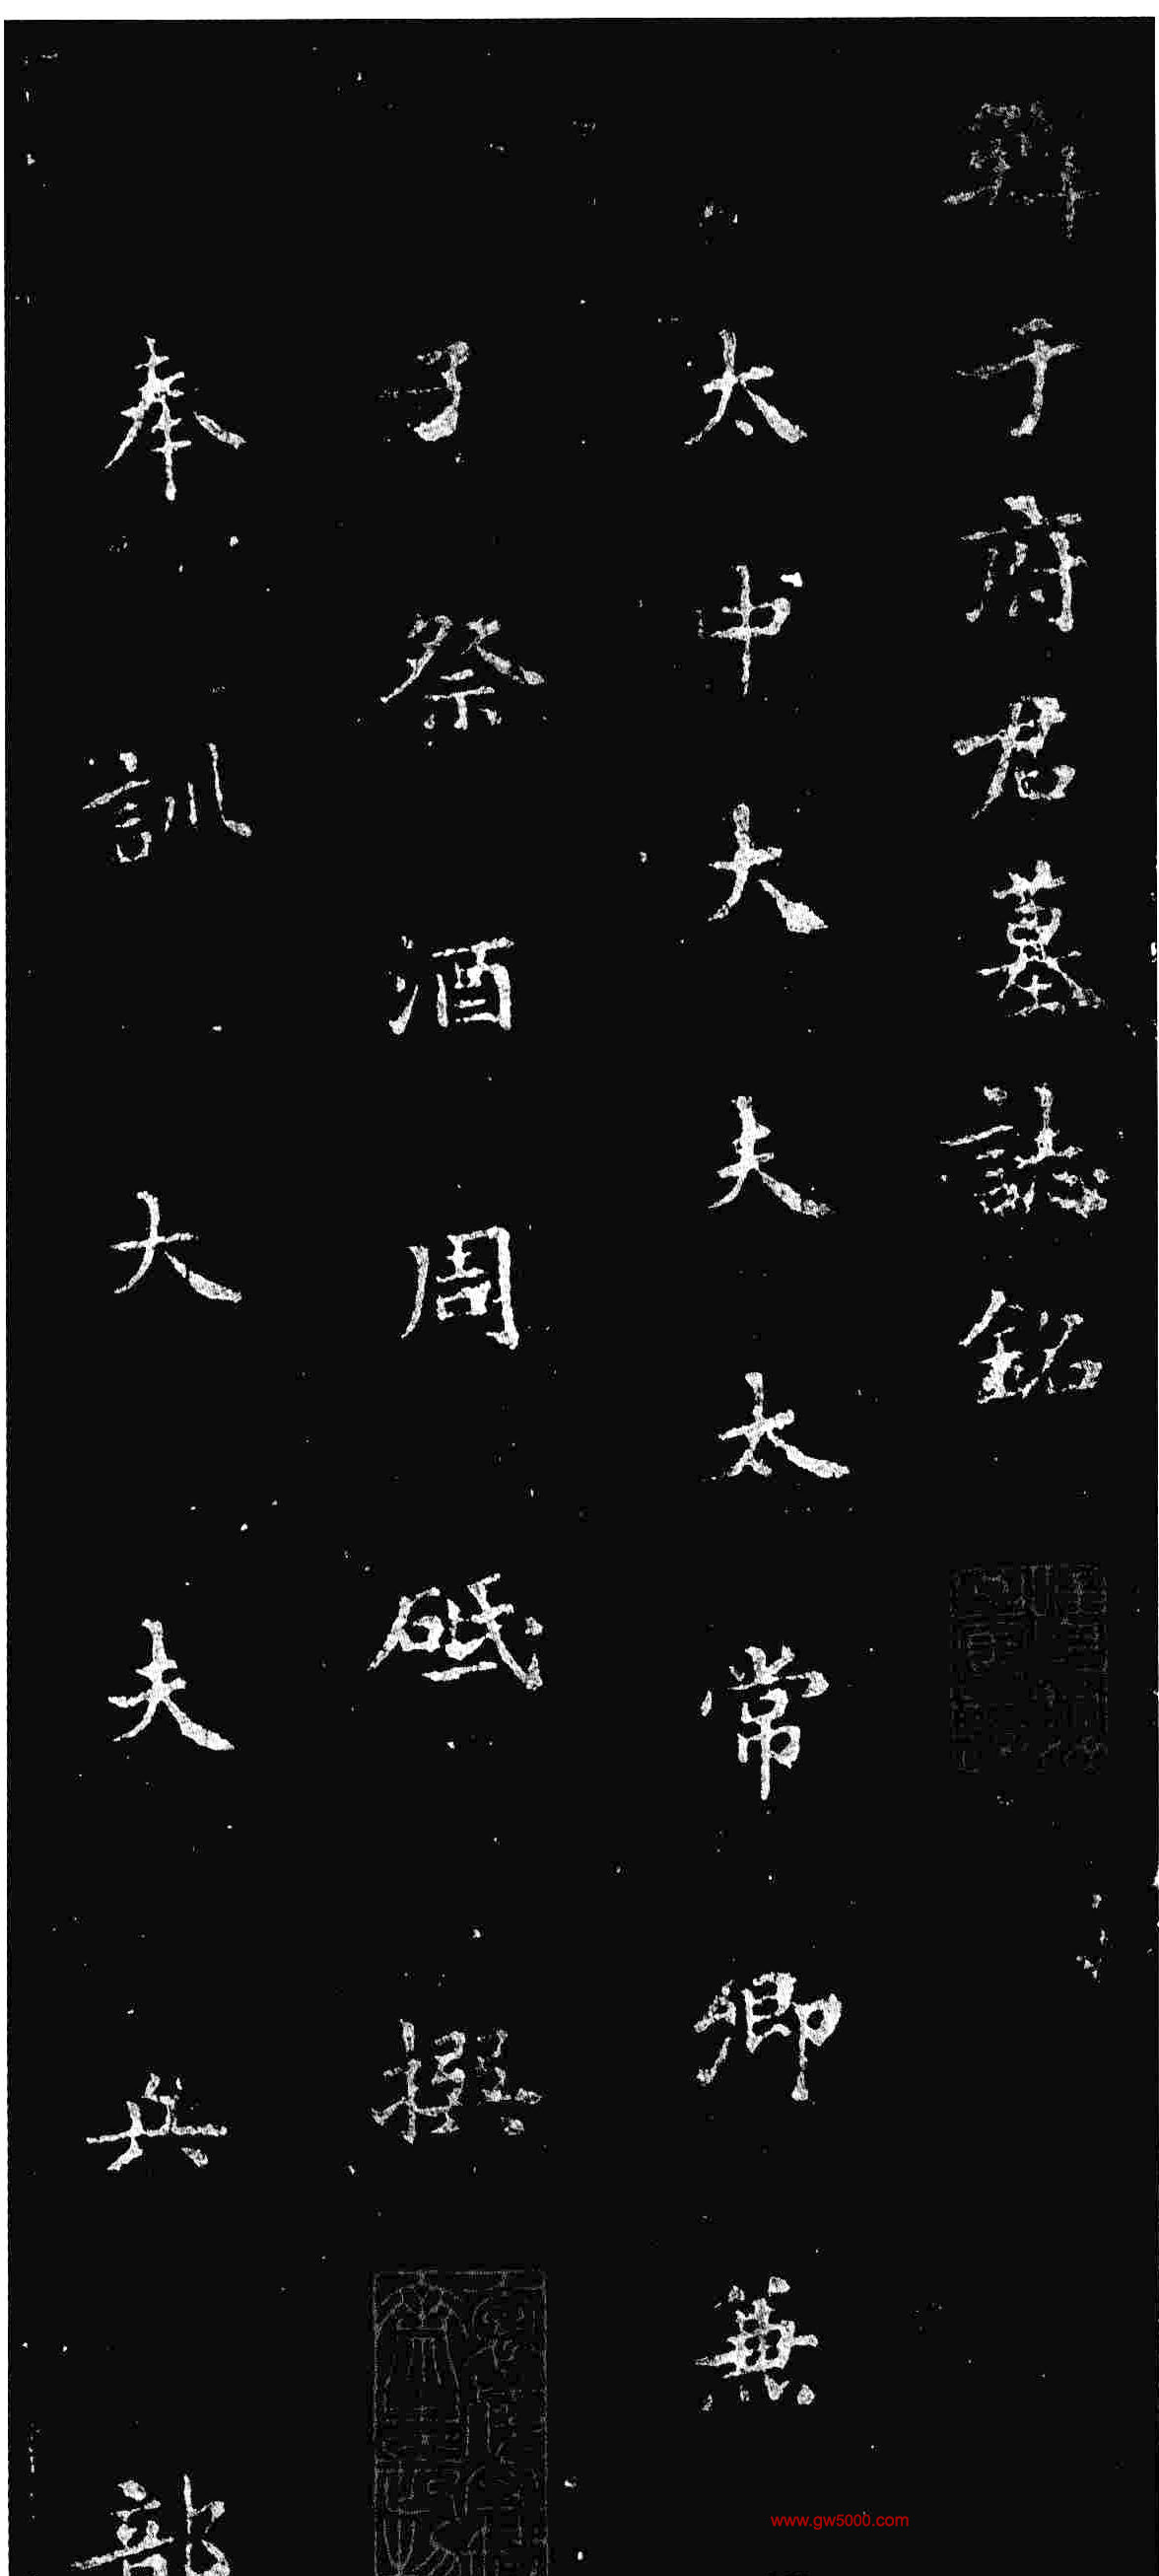 鮮于府君墓誌銘
太中大夫太常卿兼
子祭酒周砥撰
奉訓大夫兵部
www.gw5000.com